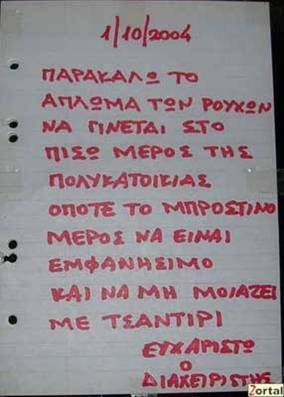 1/10/2004
ΠΑΡΑΚΑΛΩ ΤΟ
ΑΠΛΩΜΑ ΤΩΝ ΡΟΥΧΩΝ
ΝΑ ΓΙΝΕΤΑΙ ΣΤΟ
ΠΙΣΩ ΜΕΡΟΣ ΤΗΣ
ΠΟΛΥΚΑΤΟΙΚΙΑΣ
ΟΠΟΤΕ ΤΟ ΜΠΡΟΣΤΙΝΟ
ΜΕΡΟΣ ΝΑ ΕΙΝΑΙ
ΕΜΦΑΝΗΣΙΜΟ
ΚΑΙ ΝΑ ΜΗ ΜΟΙΑΖΕΙ
ΜΕ ΤΣΑΝΤΙΡΙ
ΕΥΧΑΡΙΣΤΩ
Ο
ΔΙΑΧΕΙΡΙΣΤΗΣ
Zortal